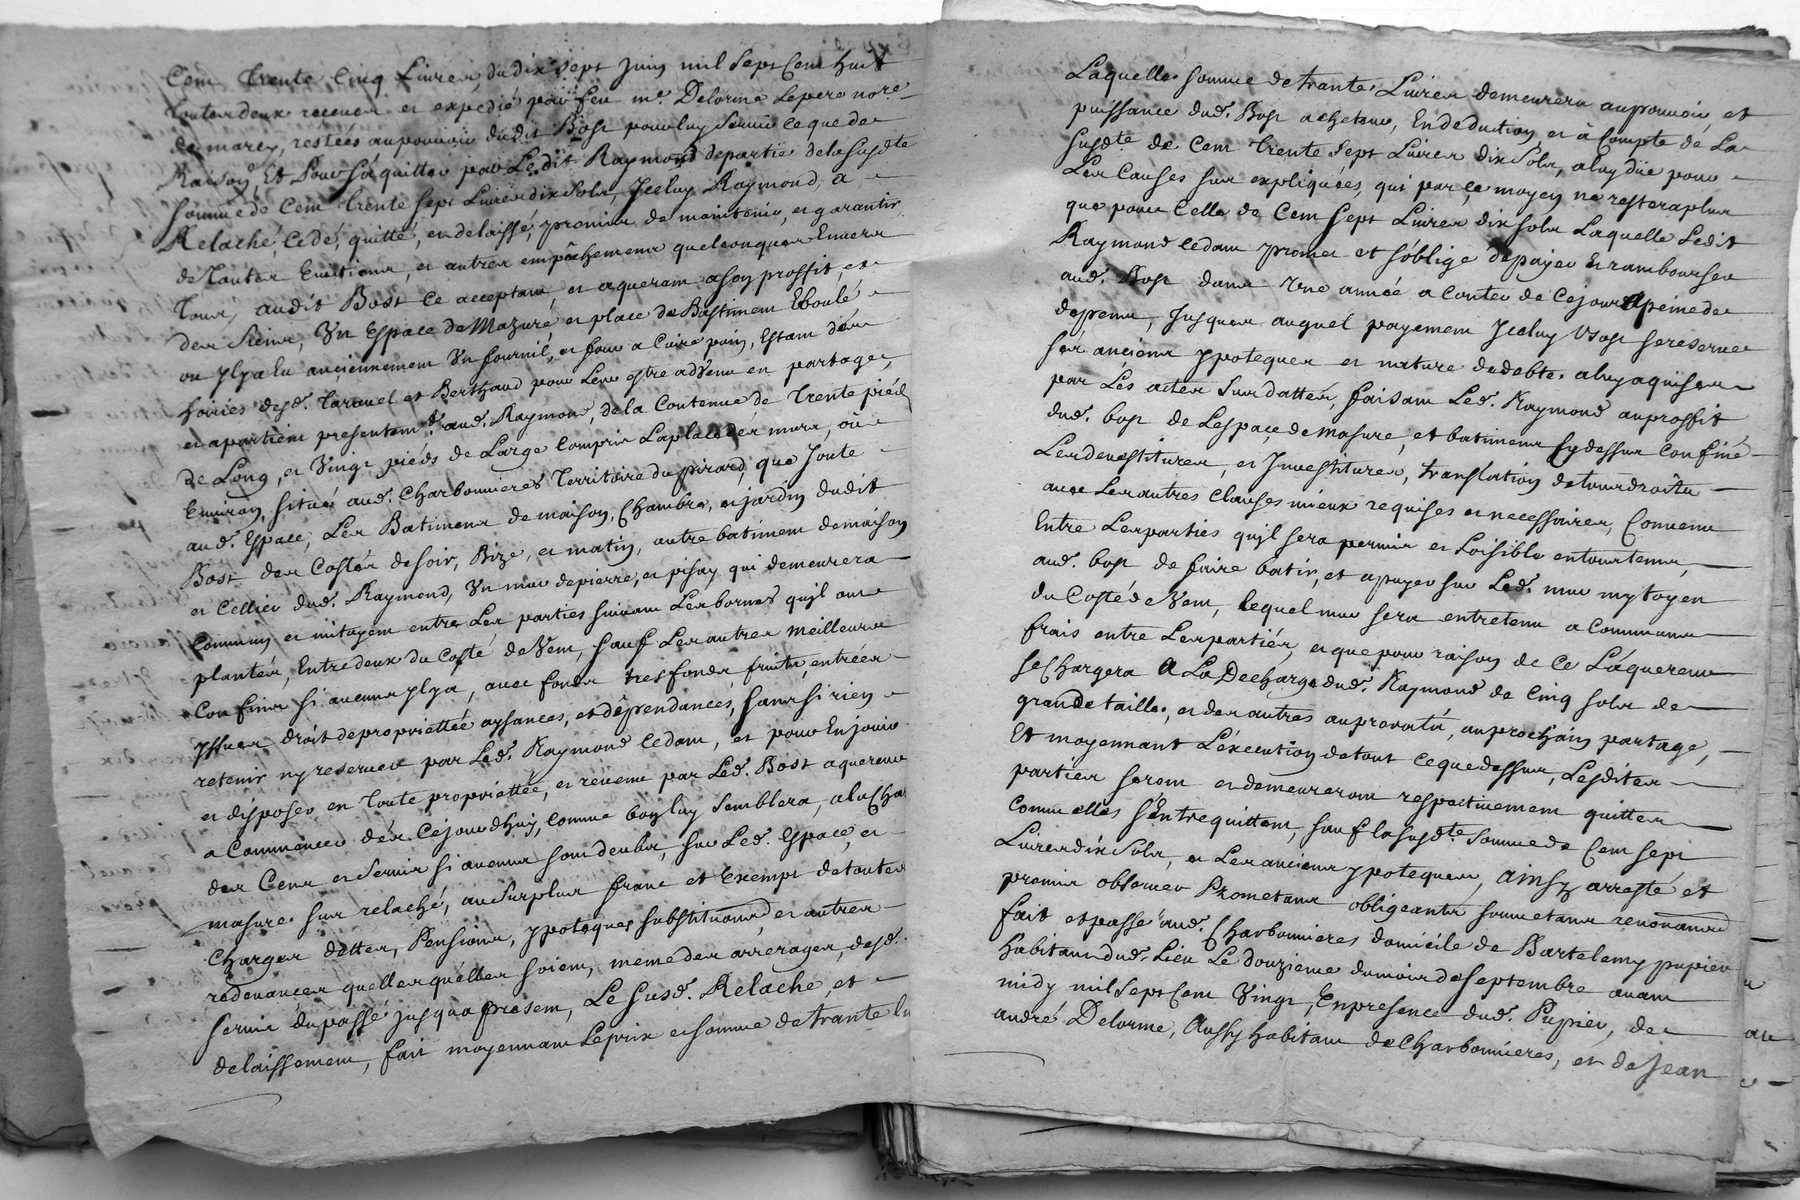 Cent trente cinq Livres, du dix sept Juin mil sept Cent huit
toutes deux receues et expedié par feu me. Delorme Lepere nore.
de marcy, restées au pouvoir dudit Bost pour luy servir ce que de
Raison, Et Pour s'aquitter par Ledit Raymond departie de la susdte
somme de Cent trente sept Livres dix sols, Iceluy Raymond, a
Relaché, cedé, quitté, et delaissé, promis de maintenir, et garantir
de toutes Evictions, et autres empâchements quelconques Envers
Tous, audit Bost ce acceptant, et aquerant a son proffit, et
des siens, Un Espace de Mazure, et place de Bastiment Eboulé
ou Il y a Eu anciennement Un fournil, et four a Cuire pain, Estant des
hoiries desd. Taravel et Berthaud pour Leur estre advenu en partage,
et apartient presentemt. aud. Raymond, de la Contenue de trente pieds
de Long, et Vingt pieds de Large compris La place des murs, ou
Environ, situé aud. Charbonnieres Territoire du pirard, que Joute
aud. Espace, Les Batiments de maison, Chambre, et jardin dudit
Bost des Costés de soir, Bize, et matin, autre batiment de maison
et Cellier dud. Raymond, Un mur de pierre, et pisay qui demeurera
Commun et mitoyent entre Les parties suivant Les bornes qu'il ont
plantés, Entredeux du Costé de Vent, sauf Les autres meilleurs
Confins si aucuns y'l y a, avec fonds tresfonds fruits, entrées
yssues droit de propriettée aysances, et dependances, sans si rien
retenir ny reserver par Led. Raymond cedant, et pour En jouir
et disposer en toute propriettée, et revenu par Led. Bost aquereur
a Commencer dès Cejourd'huy, comme bon luy semblera, a la Char
des Cens et servis si aucuns sont deubs, sur Led. Espace, et
masure sur relaché, au surplus franc et Exempt de toutes
Charges dettes, Pensions, ypoteques substitutions, et autres
redevances quelles quelles soient, meme des arrerages, desd.
servis du passé jusqu'a present, Le susd. Relache, et
delaissement, fait moyennant Le prix et somme de trante li
Laquelle somme de trante Livres demeurera au pouvoir, et
puissance dud. Bost acheteur, En deduction, et à Compte de La
susdte de Cent trente sept Livres dix sols, a luy due pour
Les Causes sus expliquées, qui par ce moyen ne restera plus
que pour Celle de Cent sept Livres dix sols Laquelle Ledit
Raymond cedant promet et s'oblige de payer Et rambourser
aud. Bost dans Une année a Conter de Ce jour a peine de
depens, Jusques auquel payement Iceluy Bost se reserve
ses anciens ypoteques et nature de debte a luy aquise
par Les actes sus dattés, faisant Led. Raymond au proffit
dud. bost de Lespace de masure, et batiment cy dessus Confiné
Les devestitures, et Investitures, translation de tous droits
avec Les autres clauses mieux requises et necessaires, Convenu
Entre Les parties qu'il sera permis et Loisible en tout tems,
aud. bost de faire batir, et apuyer sur Led. mur mytoyen
du Costé de Vent, lequel mur sera entretenu a Communs
frais entre Les parties, et que pour raison de Ce L'aquereur
se Chargera a La Decharge dud. Raymond de Cinq sols de
grande taille, et des autres au prorata, au prochain partage,
Et moyennant L'execution de tout Ce que dessus, Lesdites
parties seront et demeureront respectivement quittes
Comme elles s'Entrequittent, sauf la susdte. somme de Cent sept
Livres dix sols, et Les anciens ypoteques, ainsy arresté et
promis observer Prometans obligeants soumetans renonçants
fait et passé aud. Charbonnieres domicile de Bartelemy pupier
habitant dud. Lieu Le douzieme du mois de septembre avant
midy mil sept Cent Vingt, En presence dud. Pupier, de
andré Delorme, Aussy habitant de Charbonnieres, et de Jean